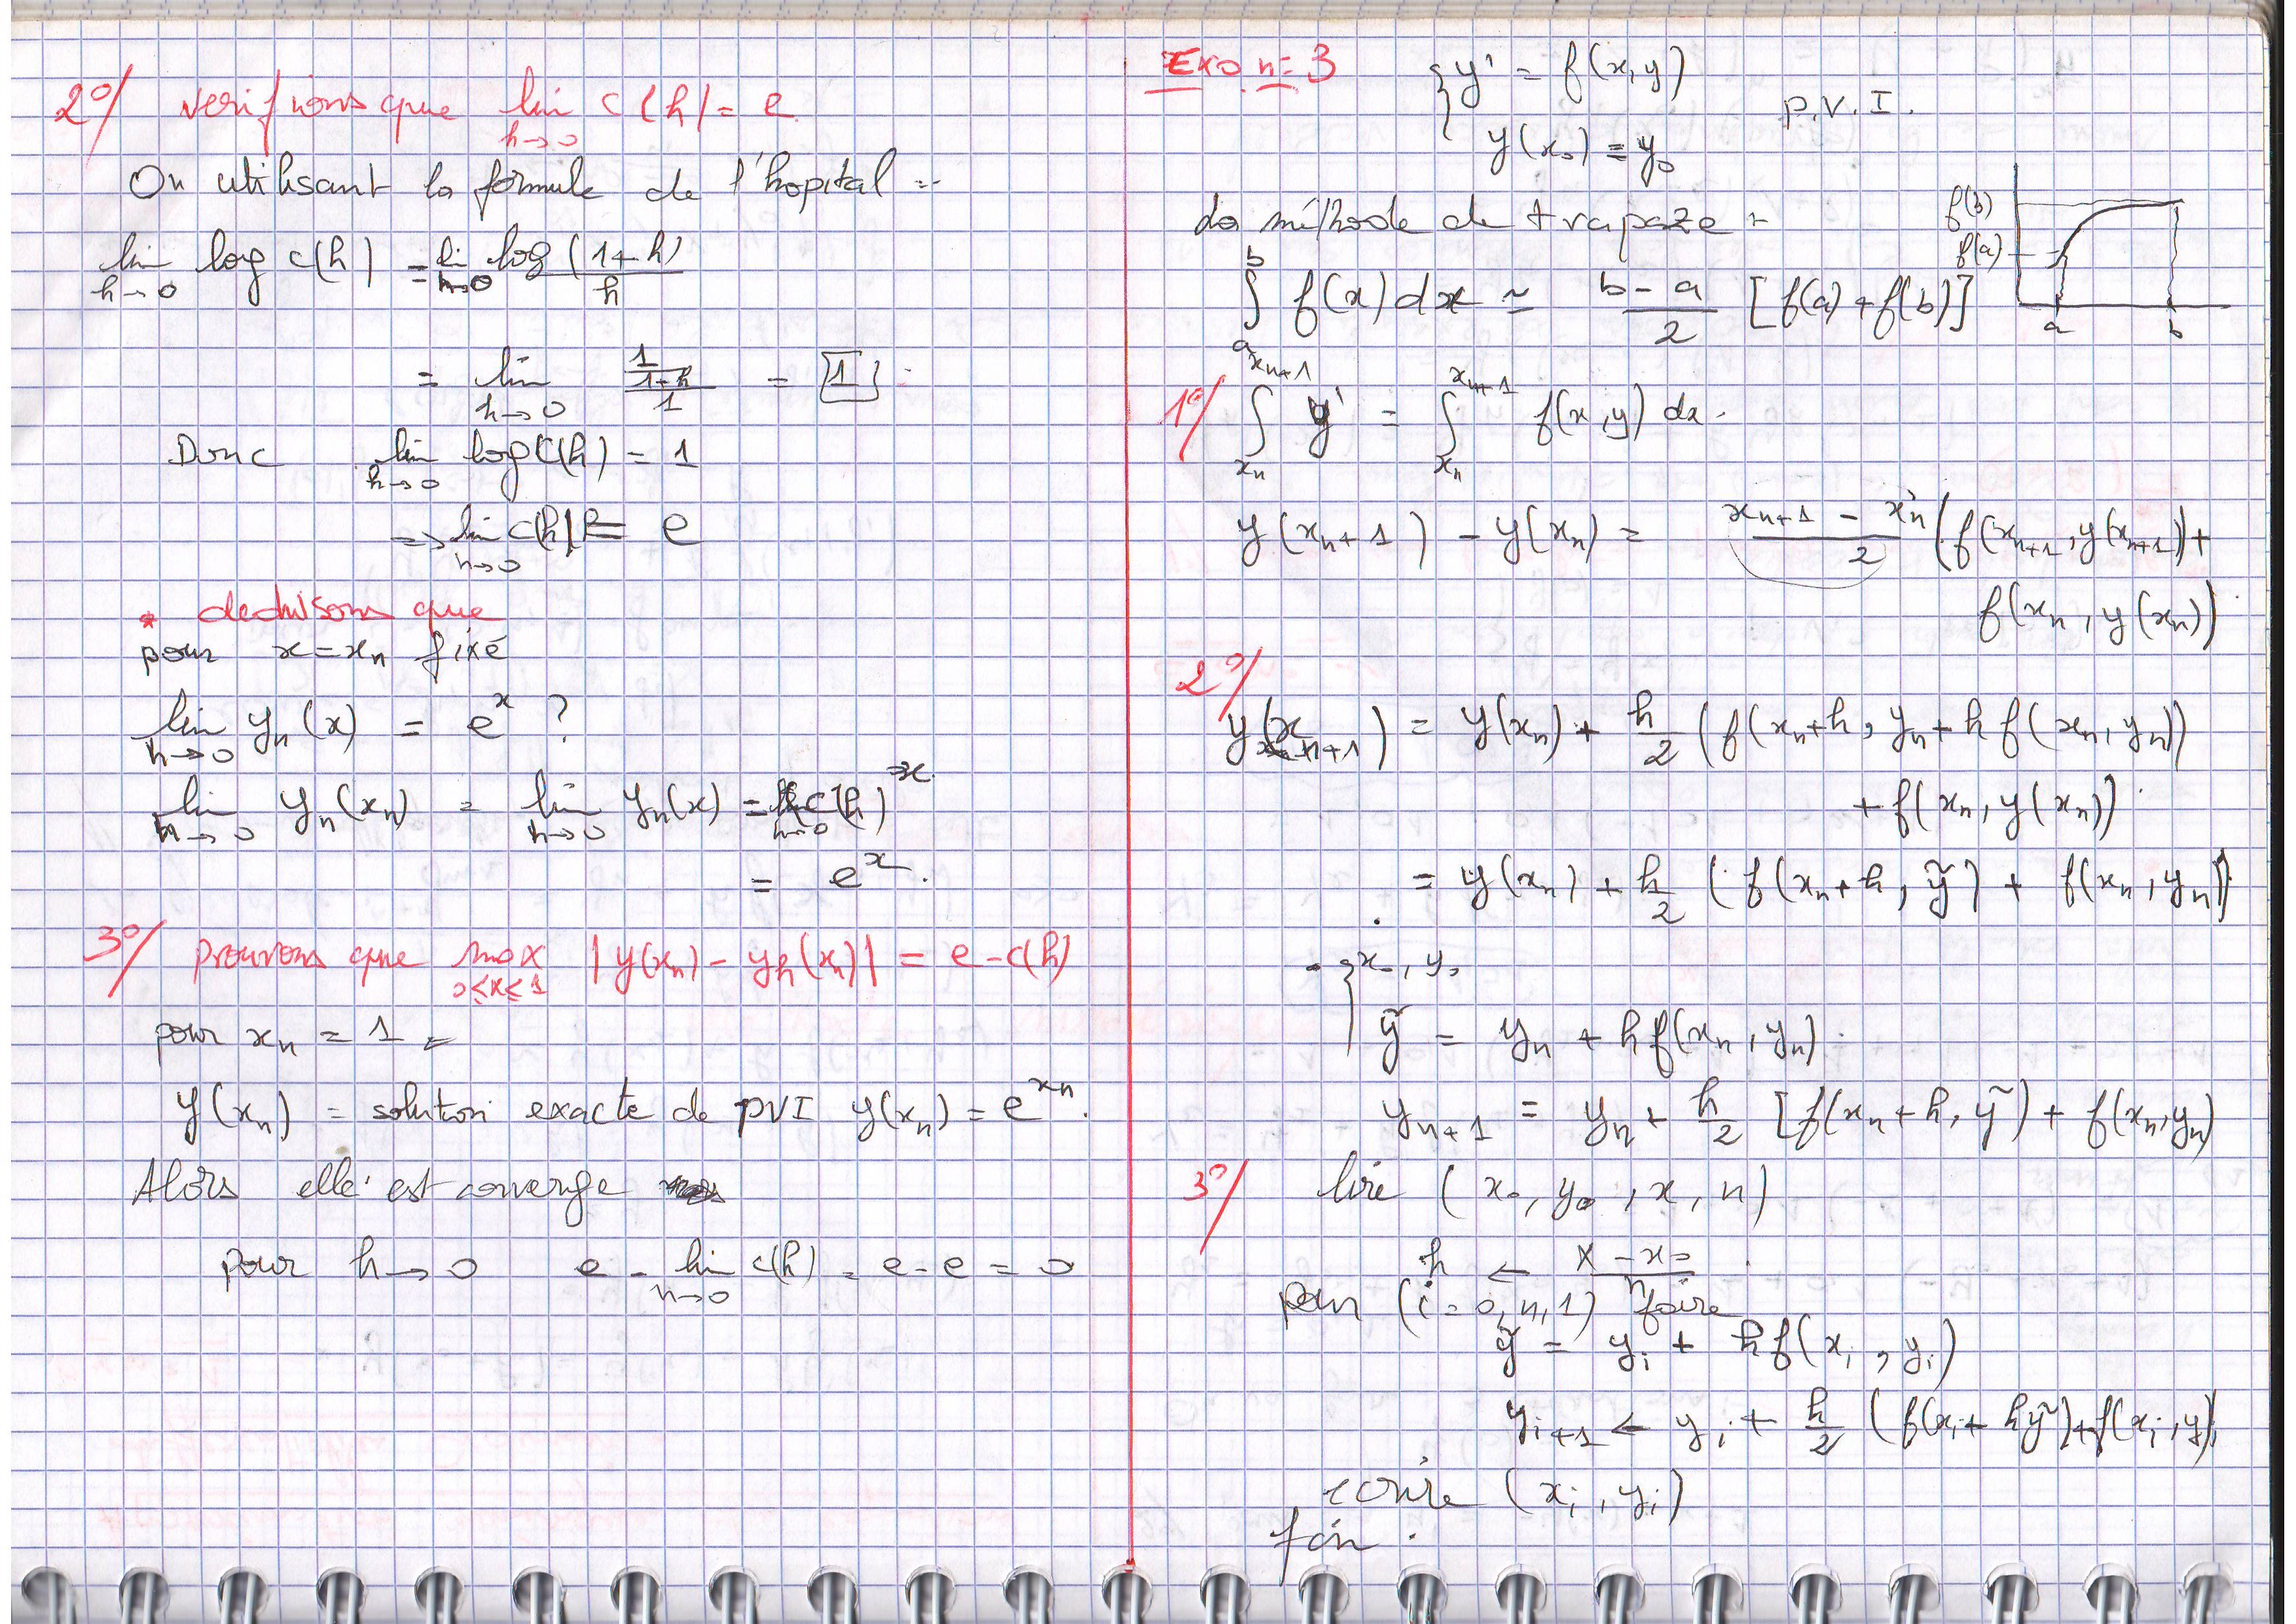 2°/ verifions que lim c(h) = e
h→0
On utilisant la formule de l'hopital :
lim log c(h) = lim log (1+h) / h
h→0 h→0
= lim (1/(1+h)) / 1 = 1
h→0
Donc lim log C(h) = 1
h→0
=> lim c(h) = e
h→0
* deduisons que
pour x = xn fixé
lim yn(x) = e^x ?
h→0
lim yn(xn) = lim yn(x) = lim c(h)^x
h→0 h→0 h→0
= e^x.
3°/ prouvons que max |y(xn) - yh(xn)| = e - c(h)
0≤x≤1
pour xn = 1 =
y(xn) = solution exacte de PVI y(xn) = e^xn.
Alors elle est converge
pour h→0 e - lim c(h) = e - e = 0
h→0
Exo n=3
{ y' = f(x,y)
y(x0) = y0
P.V.I.
la méthode de trapaze
∫_a^b f(x) dx ≃ (b-a)/2 [f(a) + f(b)]
f(b)
f(a)
a b
1°/ ∫_xn^xn+1 y' = ∫_xn^xn+1 f(x,y) dx.
y(xn+1) - y(xn) = (xn+1 - xn)/2 (f(xn+1, y(xn+1)) +
f(xn, y(xn))
2°/
y(xn+1) = y(xn) + h/2 (f(xn+h, yn + h f(xn, yn))
+ f(xn, y(xn))
= y(xn) + h/2 (f(xn+h, ỹ) + f(xn, yn))
{ x0, y0
ỹ = yn + h f(xn, yn).
yn+1 = yn + h/2 [f(xn+h, ỹ) + f(xn, yn)
3°/ lire (x0, y0, x, n)
h ← (X - x0)/n
pour (i = 0, n, 1) faire
ỹ = yi + h f(xi, yi)
yi+1 ← yi + h/2 (f(xi + h ỹ) + f(xi, yi)
ecrire (xi, yi)
fin.